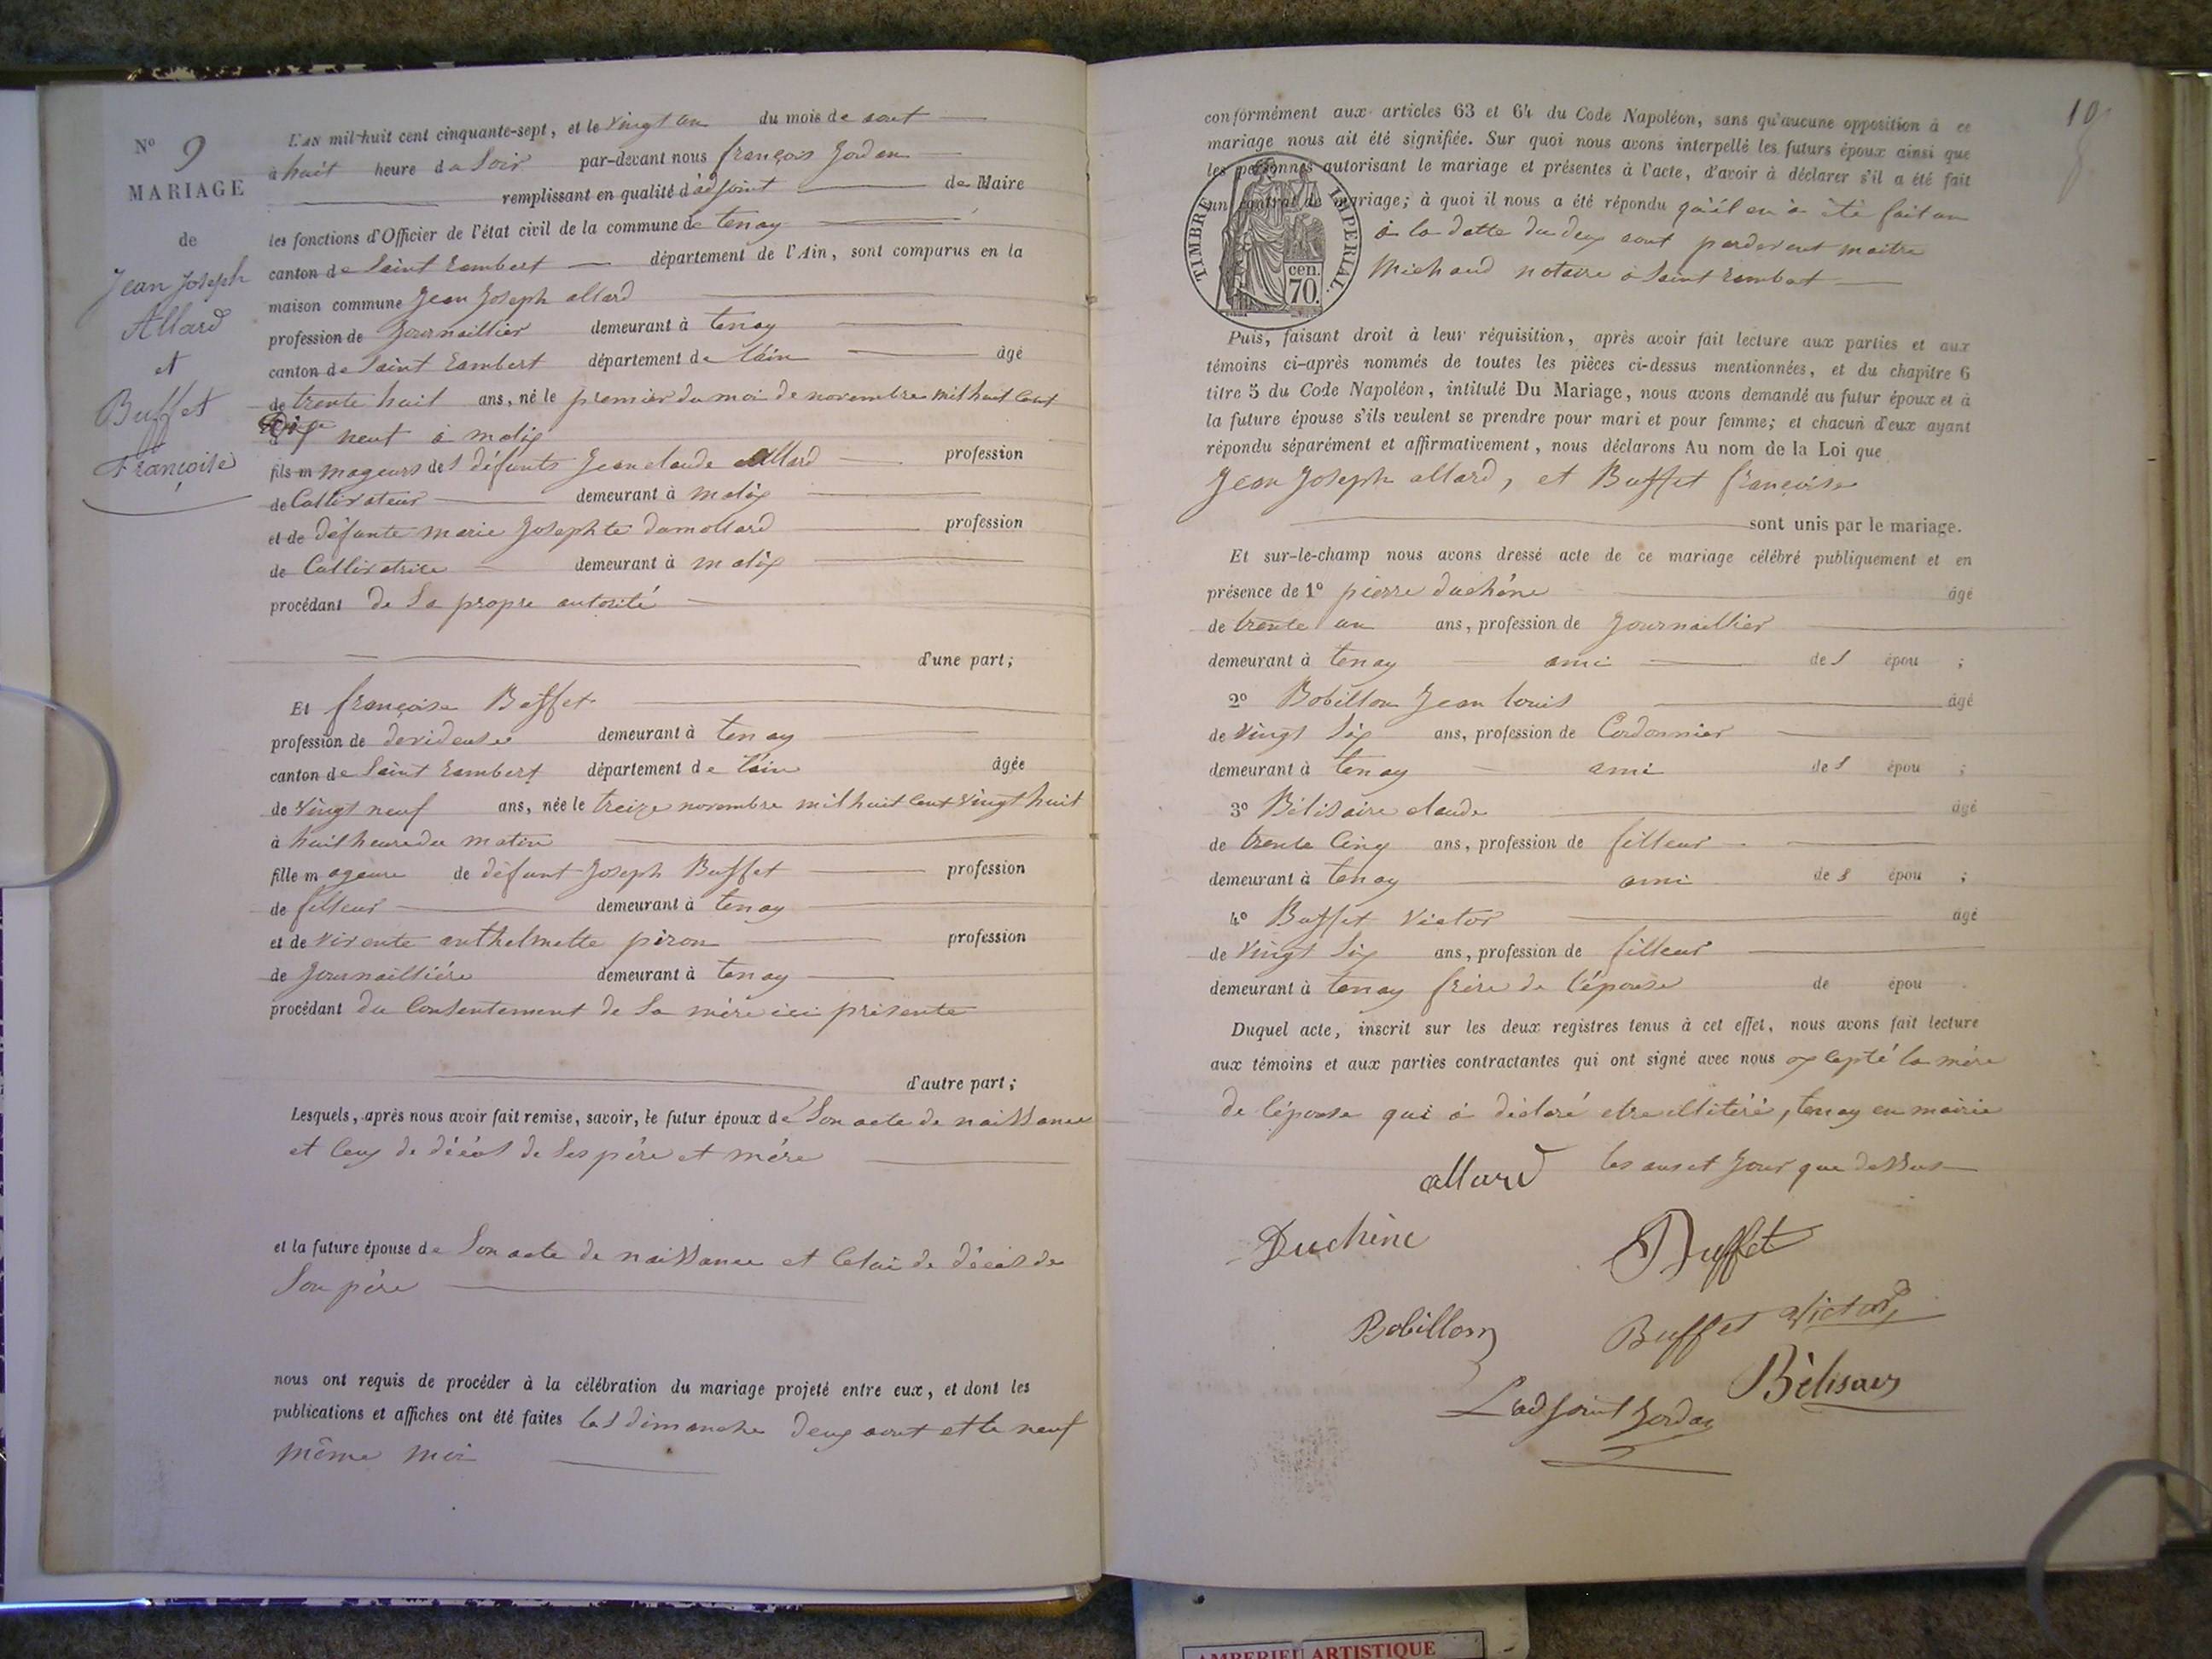 N° 9
MARIAGE
de
Jean Joseph
Allard
et
Buffet
Françoise
L'AN mil-huit cent cinquante-sept, et le vingt un du mois de aout
à huit heure du Soir par-devant nous françois Jordan
remplissant en qualité d'adjoint de Maire
les fonctions d'Officier de l'état civil de la commune de tenay
canton de Saint Rambert département de l'Ain, sont comparus en la
maison commune Jean Joseph allard
profession de Journaillier demeurant à tenay
canton de Saint Rambert département de l'ain âgé
de trente huit ans, né le premier du moi de novembre mil huit Cent
Dix neuf à molix
fils m mageurs des défunts Jean claude Allard profession
de Cultivateur demeurant à molix
et de défunte marie Josephte dumollard profession
de Cultivatrice demeurant à molix
procédant de Sa propre autorité
d'une part;
Et françoise Buffet
profession de devideuse demeurant à tenay
canton de Saint Rambert département de l'ain âgée
de vingt neuf ans, née le treize novembre mil huit Cent vingt huit
à huit heure du matin
fille m ageure de défunt Joseph Buffet profession
de filleur demeurant à tenay
et de vivante anthelmette piron profession
de Journaillière demeurant à tenay
procédant du Consentement de Sa mère ici présente
d'autre part;
Lesquels, après nous avoir fait remise, savoir, le futur époux de Son acte de naissance
et Ceux de décés de Ses père et mère
et la future épouse de Son acte de naissance et Celui de décés de
Son père
nous ont requis de procéder à la célébration du mariage projeté entre eux, et dont les
publications et affiches ont été faites les dimanche deux aout et le neuf
même moi
10
conformément aux articles 63 et 64 du Code Napoléon, sans qu'aucune opposition à ce
mariage nous ait été signifiée. Sur quoi nous avons interpellé les futurs époux ainsi que
les personnes autorisant le mariage et présentes à l'acte, d'avoir à déclarer s'il a été fait
un contrat de mariage; à quoi il nous a été répondu qu'il en à été fait un
TIMBRE IMPERIAL.
cen.
70.
à la datte du deux aout pardevent maitre
Michaud notaire à Saint Rambert
Puis, faisant droit à leur réquisition, après avoir fait lecture aux parties et aux
témoins ci-après nommés de toutes les pièces ci-dessus mentionnées, et du chapitre 6
titre 5 du Code Napoléon, intitulé Du Mariage, nous avons demandé au futur époux et à
la future épouse s'ils veulent se prendre pour mari et pour femme; et chacun d'eux ayant
répondu séparément et affirmativement, nous déclarons Au nom de la Loi que
Jean Joseph allard, et Buffet françoise
sont unis par le mariage.
Et sur-le-champ nous avons dressé acte de ce mariage célébré publiquement et en
présence de 1° pierre duchêne âgé
de trente un ans, profession de Journaillier
demeurant à tenay ami des épou ;
2° Bobillon Jean louis âgé
de vingt Six ans, profession de Cordonnier
demeurant à tenay ami des épou ;
3° Bélisaire claude âgé
de trente Cinq ans, profession de filleur
demeurant à tenay ami des épou ;
4° Buffet victor âgé
de vingt Six ans, profession de filleur
demeurant à tenay frère de l'épouse de épou
Duquel acte, inscrit sur les deux registres tenus à cet effet, nous avons fait lecture
aux témoins et aux parties contractantes qui ont signé avec nous excepté la mère
de l'épouse qui à déclaré etre illitéré, tenay en mairie
les ans et Jour que dessus
allard
Duchêne
Buffet
Bobillon
Buffet victor
Bélisair
L'adjoint Jordan
AMBERIEU ARTISTIQUE